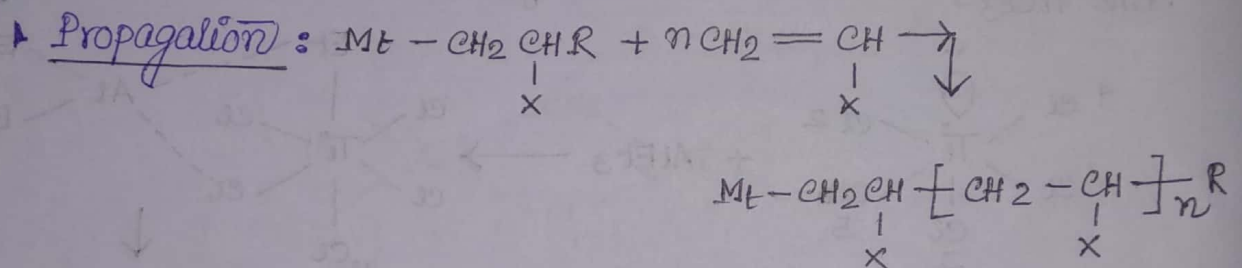 Propagation : Mt - CH2 CHR + n CH2 = CH →
X X
Mt - CH2 CH [ CH2 - CH ]n R
X X